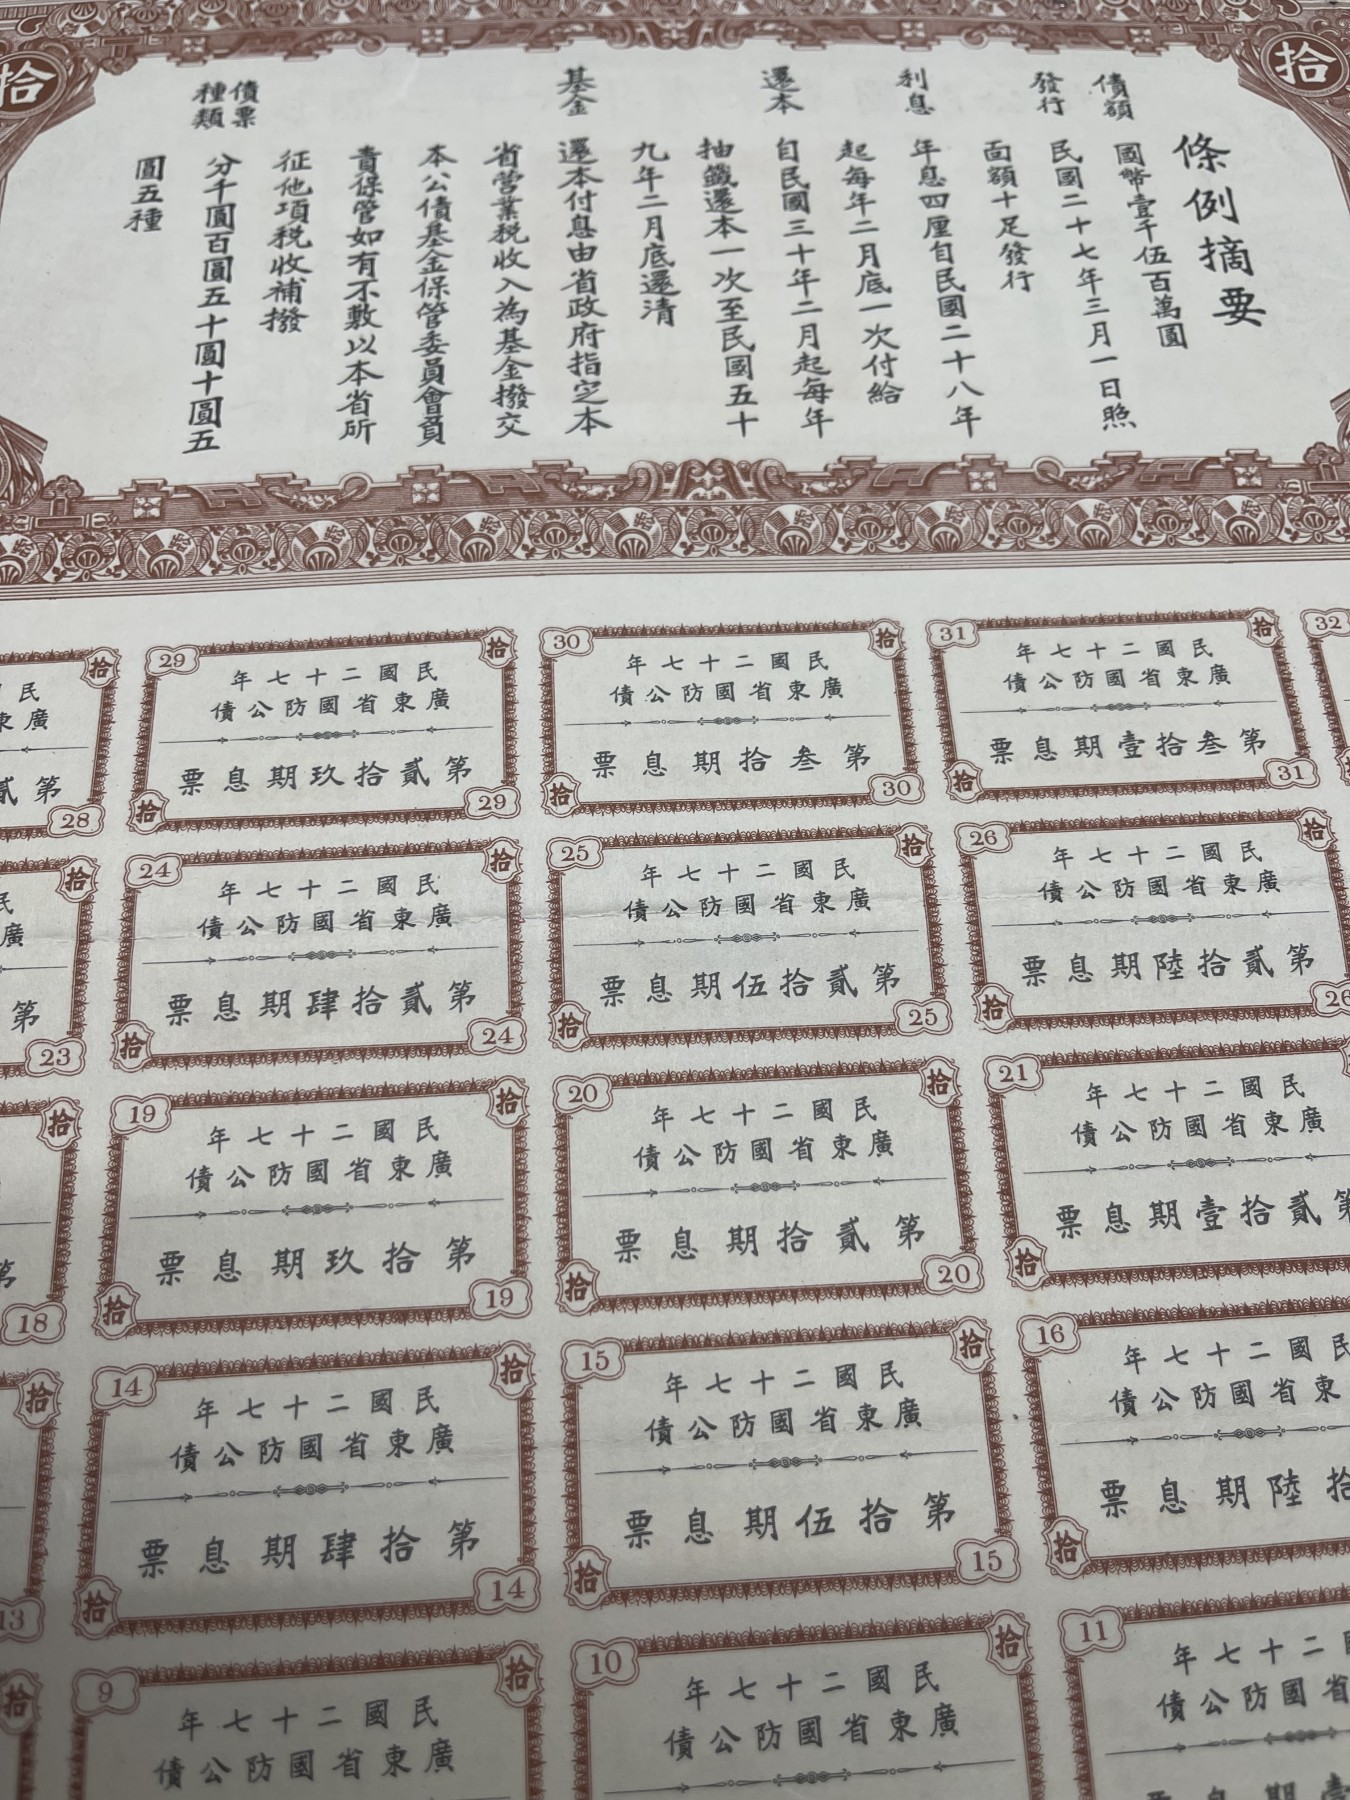 拾
拾
條例摘要
債額
國幣壹千伍百萬圓
發行
民國二十七年三月一日照
面額十足發行
利息
年息四厘自民國二十八年
起每年二月底一次付給
還本
自民國三十年二月起每年
抽籤還本一次至民國五十
九年二月底還清
基金
還本付息由省政府指定本
省營業稅收入為基金撥交
本公債基金保管委員會負
責保管如有不敷以本省所
征他項稅收補撥
債票
種類
分千圓百圓五十圓十圓五
圓五種
32
31
拾
民國二十七年
廣東省國防公債
第叁拾壹期息票
拾
31
30
拾
民國二十七年
廣東省國防公債
第叁拾期息票
拾
30
29
拾
民國二十七年
廣東省國防公債
第貳拾玖期息票
拾
29
拾
民
東
第貳
28
26
拾
民國二十七年
廣東省國防公債
第貳拾陸期息票
拾
26
25
拾
民國二十七年
廣東省國防公債
第貳拾伍期息票
拾
25
24
拾
民國二十七年
廣東省國防公債
第貳拾肆期息票
拾
24
拾
民
廣
第
23
21
民國二十七年
廣東省國防公債
第貳拾壹期息票
拾
20
拾
民國二十七年
廣東省國防公債
第貳拾期息票
拾
20
19
拾
民國二十七年
廣東省國防公債
第拾玖期息票
拾
19
拾
第
18
16
民國二十七年
東省國防公債
拾陸期息票
拾
15
拾
民國二十七年
廣東省國防公債
第拾伍期息票
拾
15
14
拾
民國二十七年
廣東省國防公債
第拾肆期息票
拾
14
拾
13
11
國二十七年
省國防公債
壹期息票
10
拾
民國二十七年
廣東省國防公債
9
拾
民國二十七年
廣東省國防公債
拾